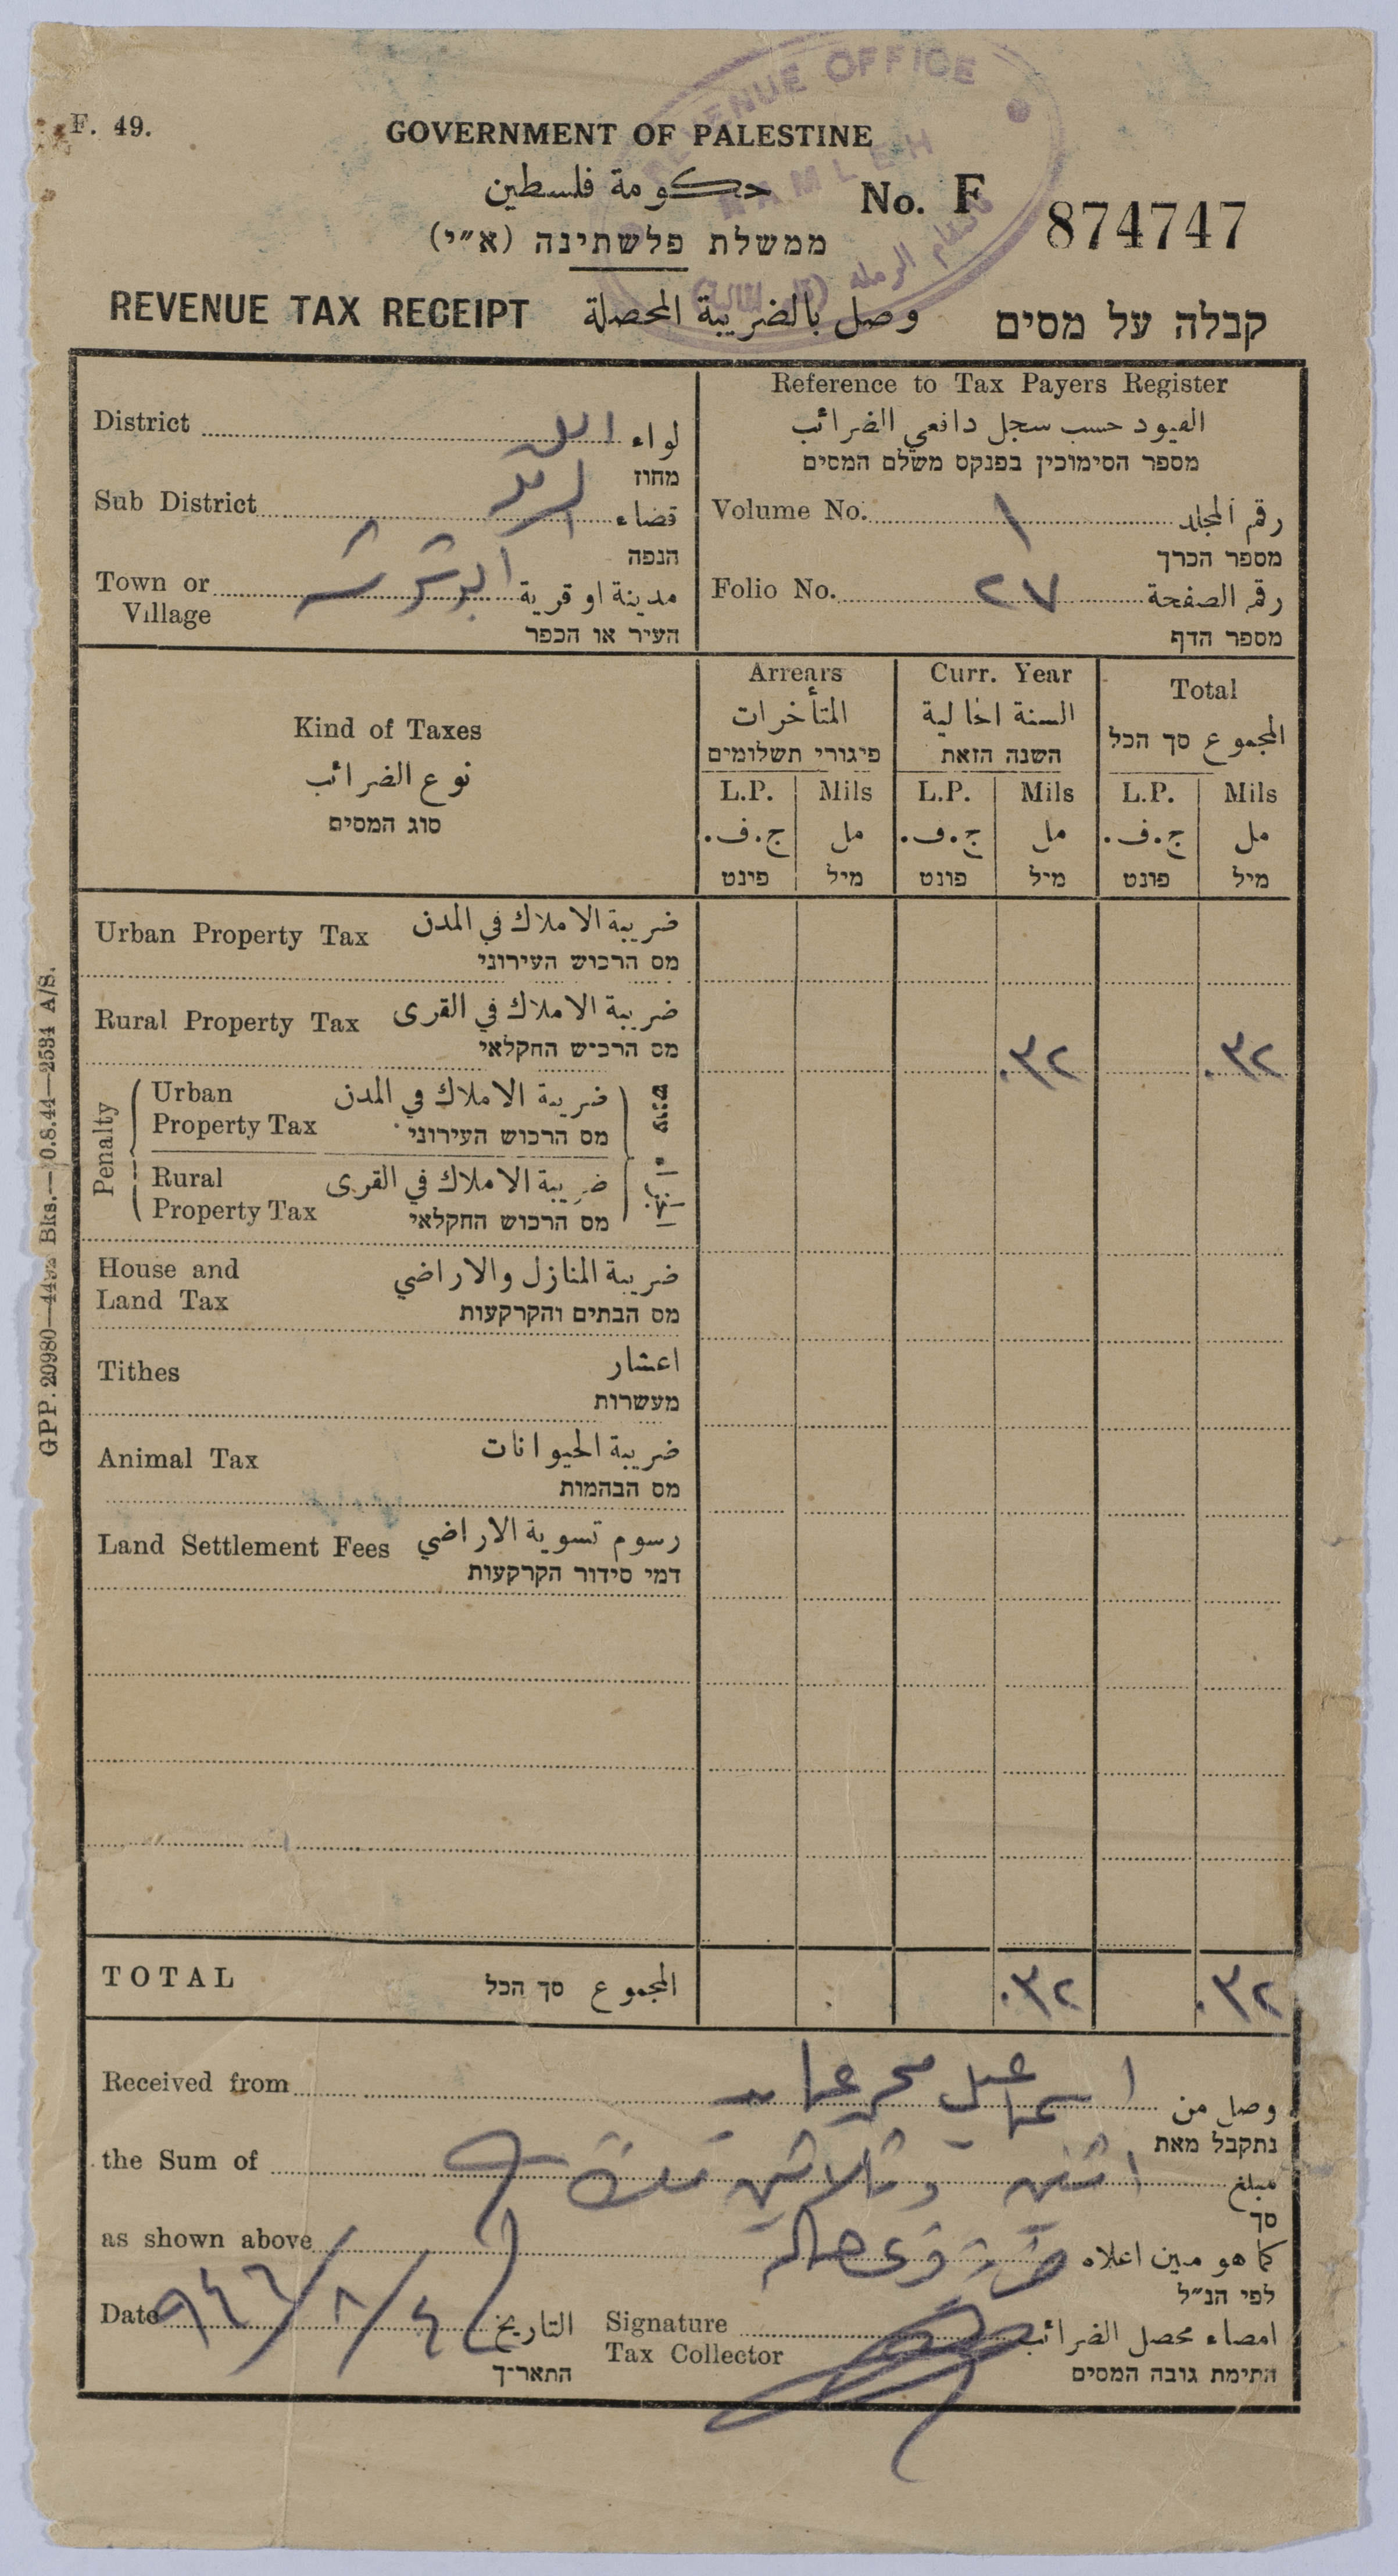 REVENUE OFFICE
RAMLEH
F. 49.
GOVERNMENT OF PALESTINE
حكومة فلسطين
ממשלת פלשתינה (א״י)
No. F 874747
REVENUE TAX RECEIPT وصل بالضريبة المحصلة קבלה על מסים
District لواء اللد
מחוז
Sub District قضاء الرملة
הנפה
Town or Village مدينة او قرية ابو شوشه
העיר או הכפר
Reference to Tax Payers Register
القيود حسب سجل دافعي الضرائب
מספר הסימוכין בפנקס משלם המסים
Volume No. ١ رقم المجلد
מספר הכרך
Folio No. ٢٧ رقم الصفحة
מספר הדף
Kind of Taxes
نوع الضرائب
סוג המסים
Arrears
المتأخرات
פיגורי תשלומים
Curr. Year
السنة الحالية
השנה הזאת
Total
المجموع סך הכל
L.P. Mils L.P. Mils L.P. Mils
ج.ف. مل ج.ف. مل ج.ف. مل
פינט מיל פונט מיל פונט מיל
Urban Property Tax ضريبة الاملاك في المدن
מס הרכוש העירוני
Rural Property Tax ضريبة الاملاك في القرى ٠٣٢ ٠٣٢
מס הרכוש החקלאי
Penalty
Urban Property Tax ضريبة الاملاك في المدن
מס הרכוש העירוני
עונש
Rural Property Tax ضريبة الاملاك في القرى
מס הרכוש החקלאי
House and Land Tax ضريبة المنازل والاراضي
מס הבתים והקרקעות
Tithes اعشار
מעשרות
Animal Tax ضريبة الحيوانات
מס הבהמות
Land Settlement Fees رسوم تسوية الاراضي
דמי סידור הקרקעות
TOTAL المجموع סך הכל ٠٣٢ ٠٣٢
Received from وصل من اسماعيل محمد
נתקבל מאת
the Sum of مبلغ اثنين وثلاثين
סך
as shown above كما هو مبين اعلاه
לפי הנ״ל
Date ٩٤٦/٨/٤ التاريخ
התאריך
Signature Tax Collector امضاء محصل الضرائب
חתימת גובה המסים
GPP. 20980—Bks.—0.8.44—2534 A/S.